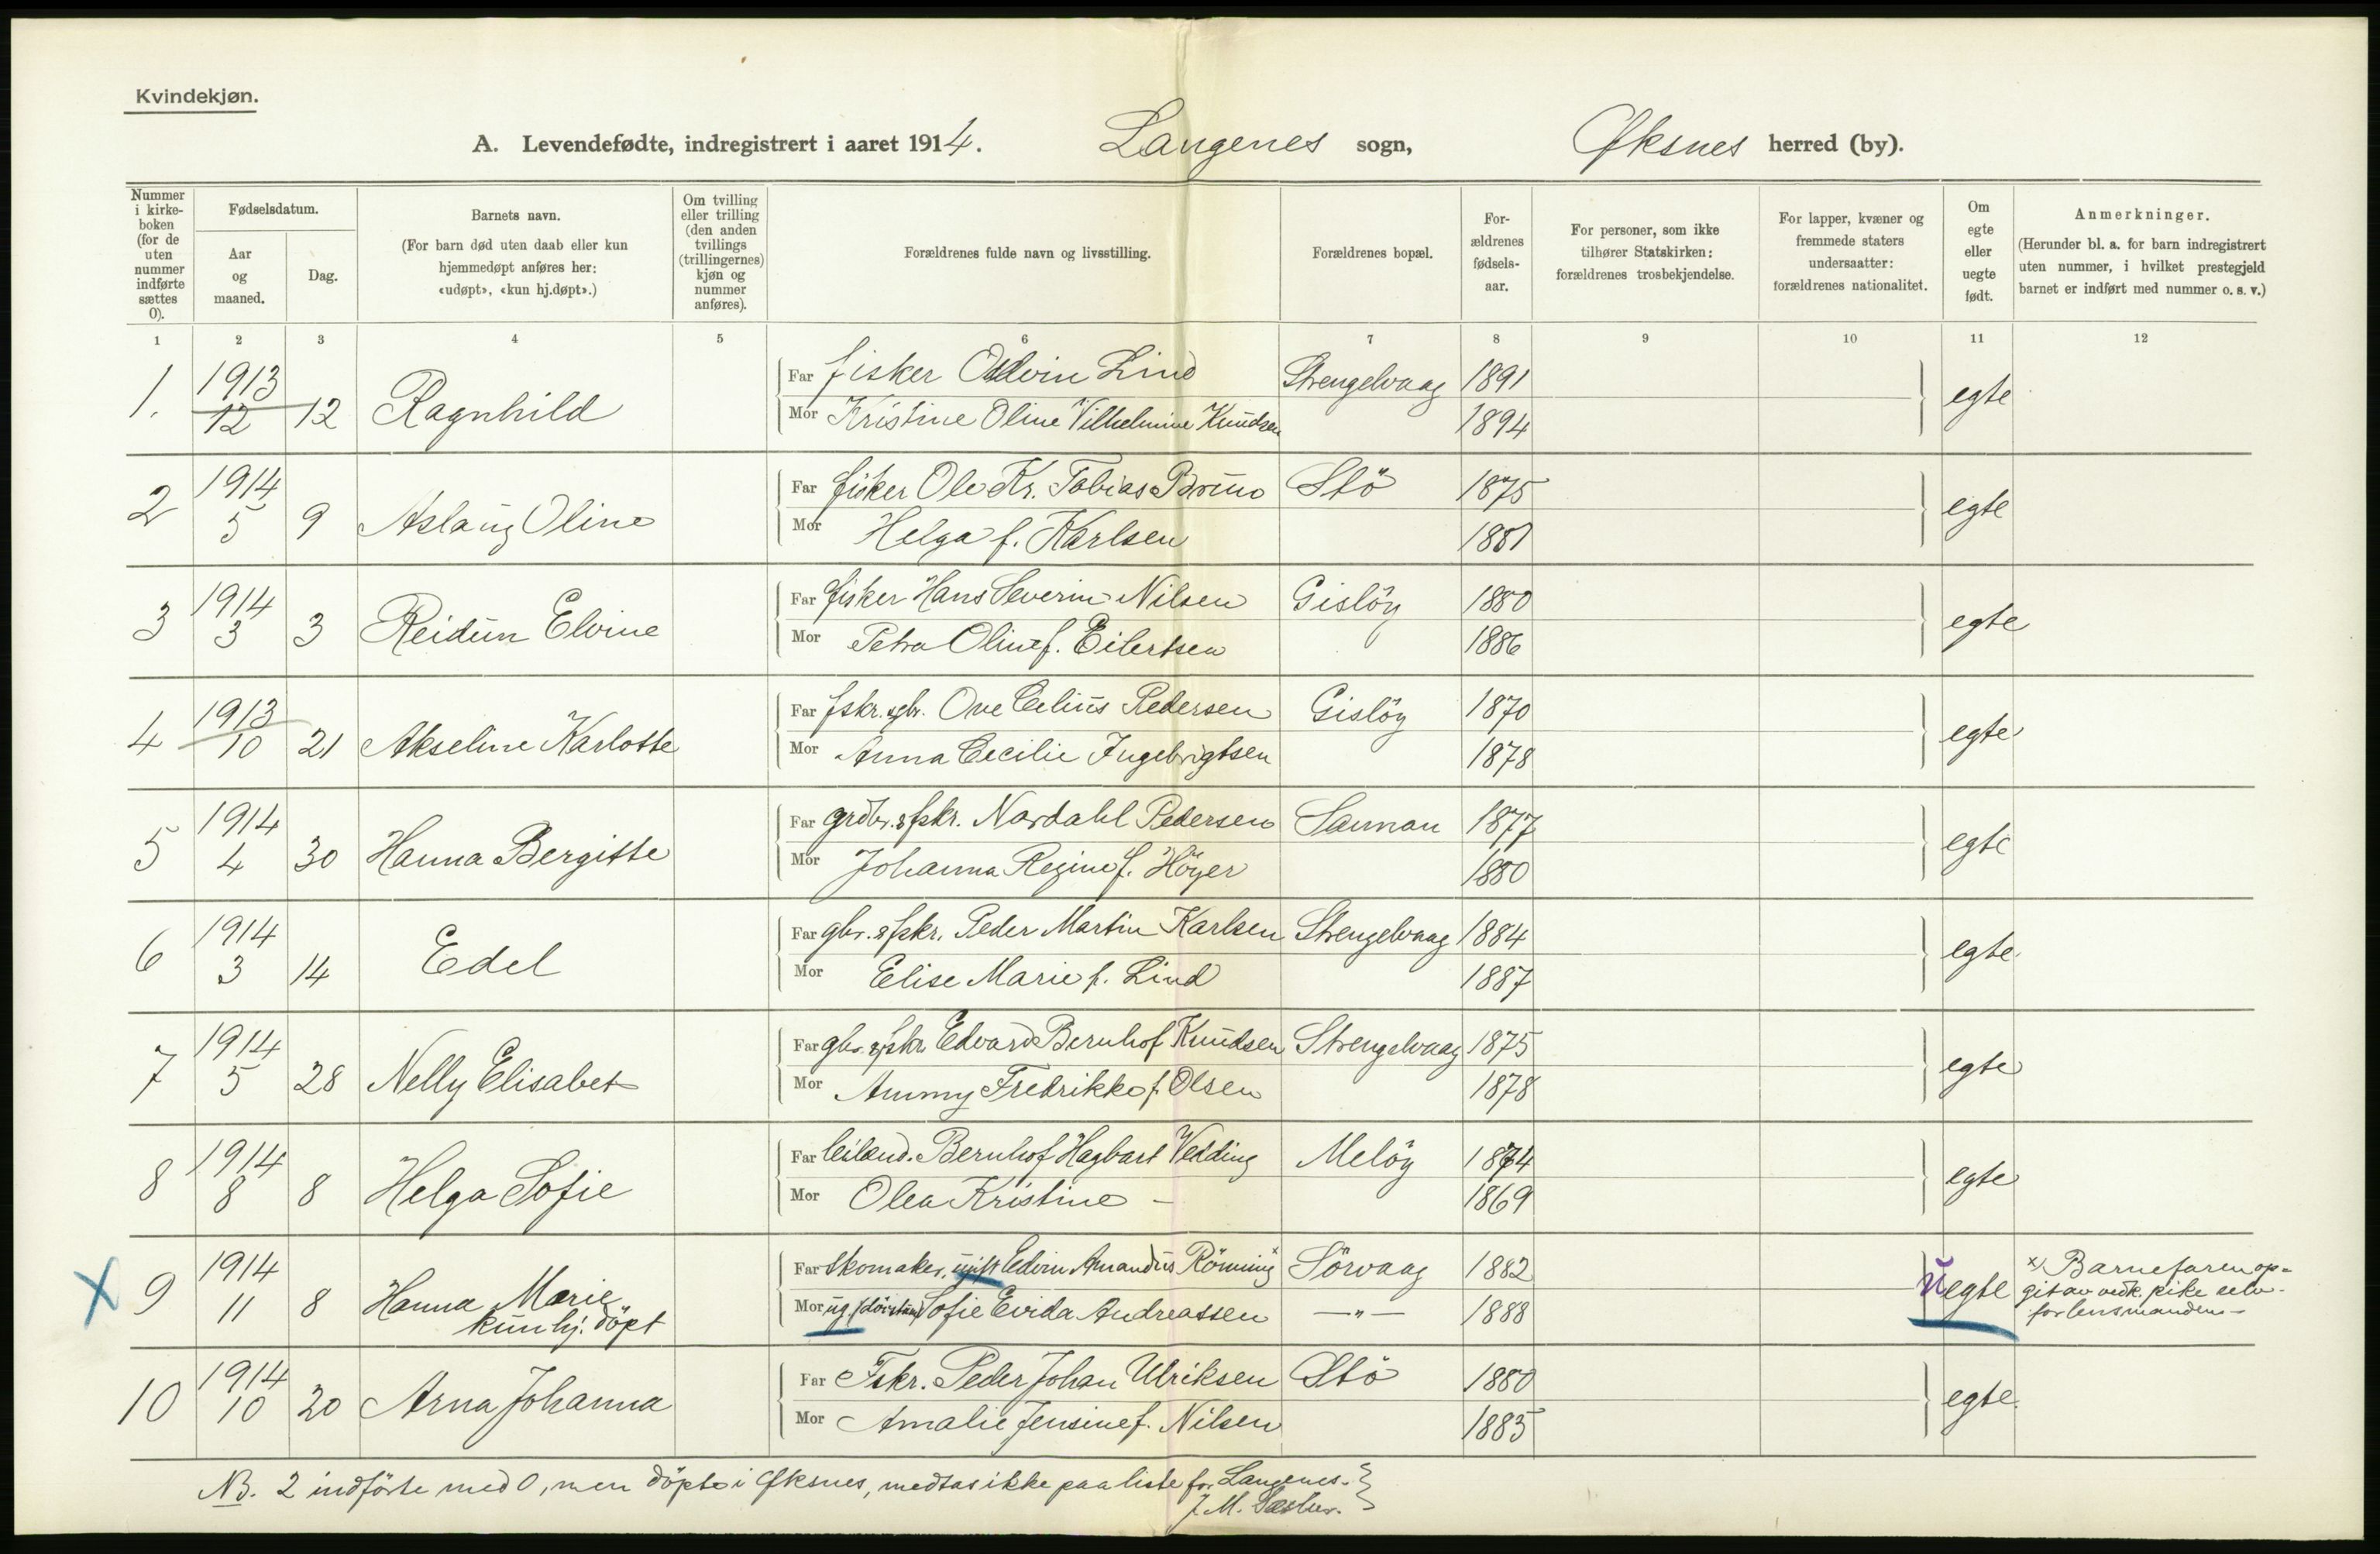 Kvindekjøn.
A. Levendefødte, indregistrert i aaret 1914. Langenes sogn, Øksnes herred (by).
Nummer i kirke-boken (for de uten nummer indførte sættes 0).
Fødselsdatum.
Aar og maaned.
Dag.
Barnets navn.
(For barn død uten daab eller kun hjemmedøpt anføres her: «udøpt», «kun hj.døpt».)
Om tvilling eller trilling (den anden tvillings (trillingernes) kjøn og nummer anføres).
Forældrenes fulde navn og livsstilling.
Forældrenes bopæl.
For-ældrenes fødsels-aar.
For personer, som ikke tilhører Statskirken: forældrenes trosbekjendelse.
For lapper, kvæner og fremmede staters undersaatter: forældrenes nationalitet.
Om egte eller uegte født.
Anmerkninger.
(Herunder bl. a. for barn indregistrert uten nummer, i hvilket prestegjeld barnet er indført med nummer o. s. v.)
1 2 3 4 5 6 7 8 9 10 11 12
1. 1913 12 12 Ragnhild Far fisker Odvin Lind Strengelvaag 1891 egte
Mor Kristine Oline Vilhelmine Knudsen 1894
2 1914 5 9 Aslaug Oline Far fisker Ole Kr. Tobias Bruno Stö 1875 egte
Mor Helga f. Karlsen 1881
3 1914 3 3 Reidun Elvine Far fisker Hans Severin Nilsen Gislöy 1880 egte
Mor Petra Oline f. Eilertsen 1886
4 1913 10 21 Akseline Karlotte Far fskr. & gbr. Ove Celius Pedersen Gislöy 1870 egte
Mor Anna Cecilie Ingebrigtsen 1878
5 1914 4 30 Hanna Bergitte Far grdbr. & fskr. Nordahl Pedersen Sannan 1877 egte
Mor Johanna Regine f. Höyer 1880
6 1914 3 14 Edel Far gbr. & fskr. Peder Martin Karlsen Strengelvaag 1884 egte
Mor Elise Marie f. Lind 1887
7 1914 5 28 Nelly Elisabet Far gbr. & fskr Edvard Bernhof Knudsen Strengelvaag 1875 egte
Mor Ammy Fredrikke f. Olsen 1878
8 1914 8 8 Helga Sofie Far leilend. Bernhof Hagbart Vedding Melöy 1874 egte
Mor Olea Kristine - 1869
X 9 1914 11 8 Hanna Marie Far skomaker, ugift Edvin Amandus Rönning x Sörvaag 1882 uegte x) Barnefaren op-
kun hj. döpt Mor ug. Sofie Evida Andreassen —"— 1888 git av vedk. pike selv
for lensmanden —
10 1914 10 20 Arna Johanna Far Fskr. Peder Johan Ulriksen Stö 1880 egte
Mor Amalie Jensine f. Nilsen 1885
NB. 2 indförte med 0, men döpte i Øksnes, medtas ikke paa liste for Langenes.
J. M.